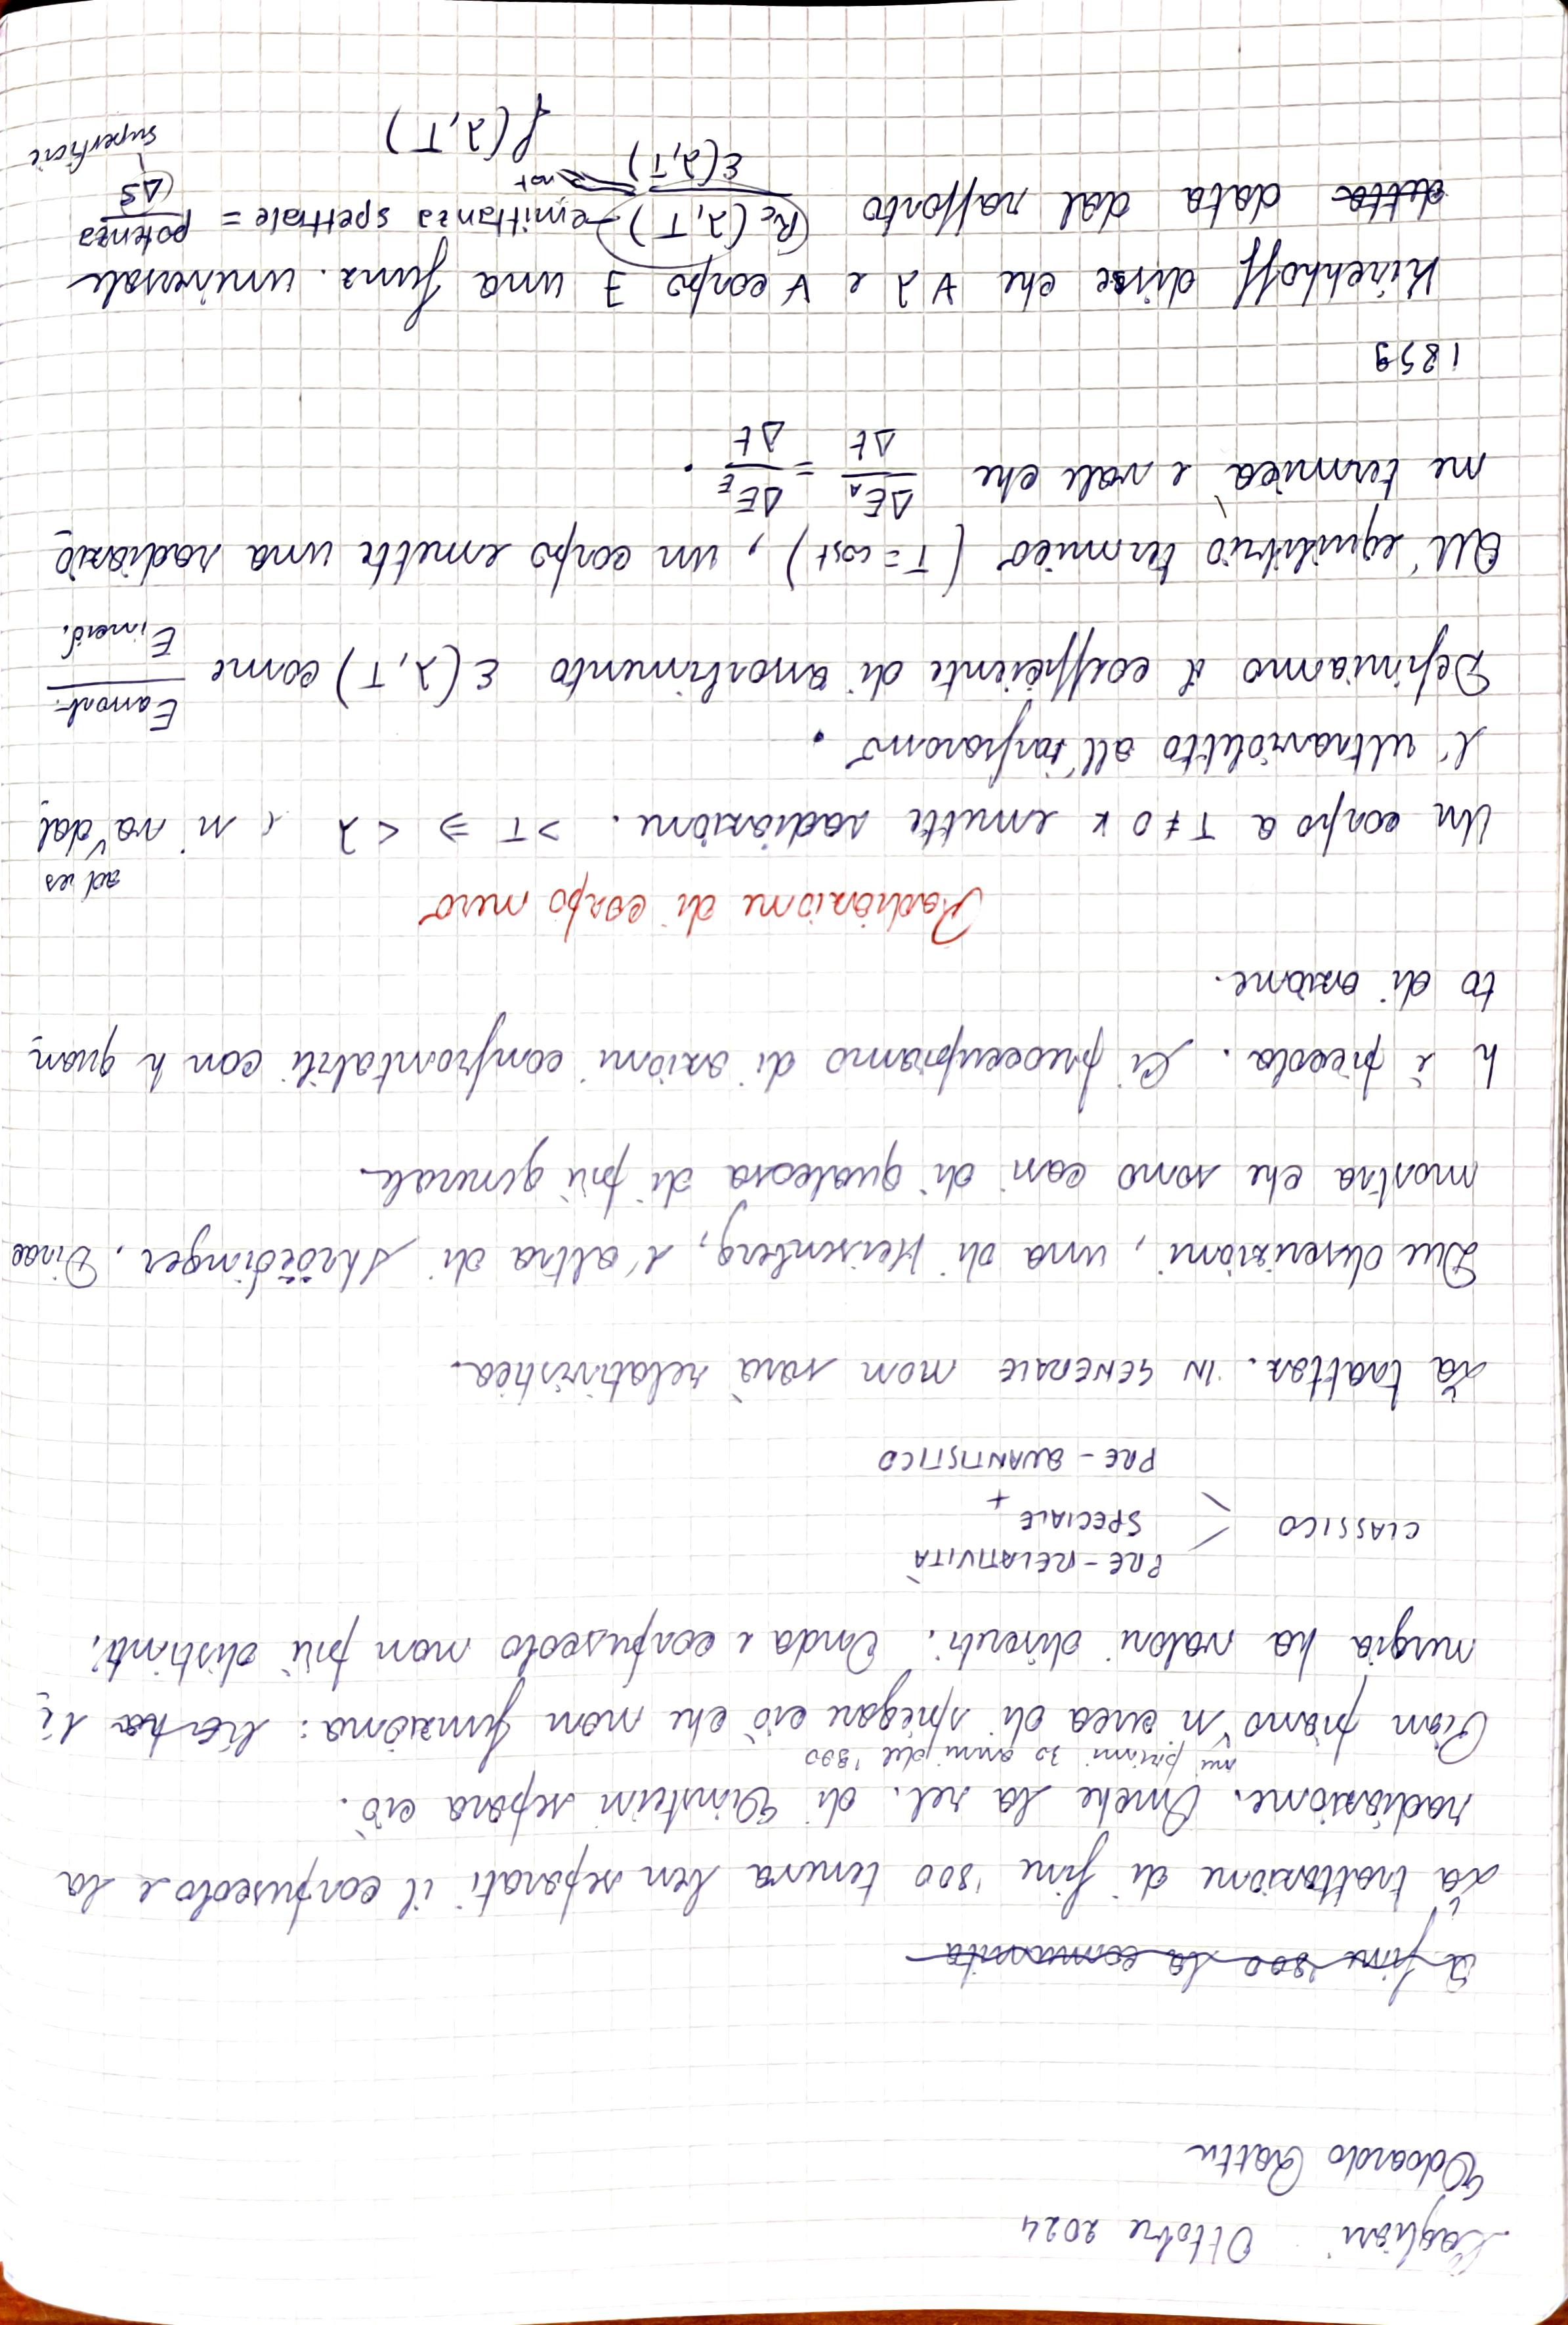 Cagliari Ottobre 2024
Edoardo Gattu
a fine '800 la comunità
La trattazione di fine '800 teneva ben separati il corpuscolo e la
radiazione. Anche la rel. di Einstein separa ciò.
nei primi 30 anni del '900
Pian piano si cerca di spiegare ciò che non funziona: l'e
nergia ha valori discreti. Onda e corpuscolo non più distinti.
PRE-RELATIVITÀ
CLASSICO < SPECIALE
+
PRE-QUANTISTICO
La trattaz. IN GENERALE non sarà relativistica.
Due descrizioni, una di Heisenberg, l'altra di Shröedinger. Dirac
mostra che sono casi di qualcosa di più generale.
h è piccola. Ci preoccupiamo di azioni confrontabili con h quan
to di azione.
Radiazione di corpo nero
ad es
Un corpo a T ≠ 0 K emette radiazione. >T ⇒ <λ , si va dal
l'ultravioletto all'infrarosso.
Definiamo il coefficiente di assorbimento ε(λ,T) come E assorb. / E incid.
All'equilibrio termico (T=cost), un corpo emette una radiazio
ne termica e vale che ΔE_A/Δt = ΔE_E/Δt.
1859
Kirchhoff disse che ∀ λ e ∀ corpo ∃ una funz. universale
detta data dal rapporto R_c(λ,T) / ε(λ,T) =not f(λ,T)
emittanza spettrale = potenza / ΔS
superficie